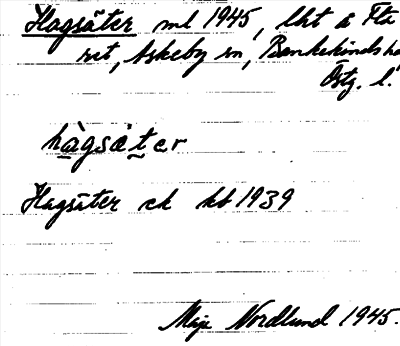 Hagsäter ml 1945, lht å Fla
ret, Askeby sn, Bankekinds hd
Östg. l.
hàgsätər
Hagsäter ek kb 1939
Maja Nordlund 1945.